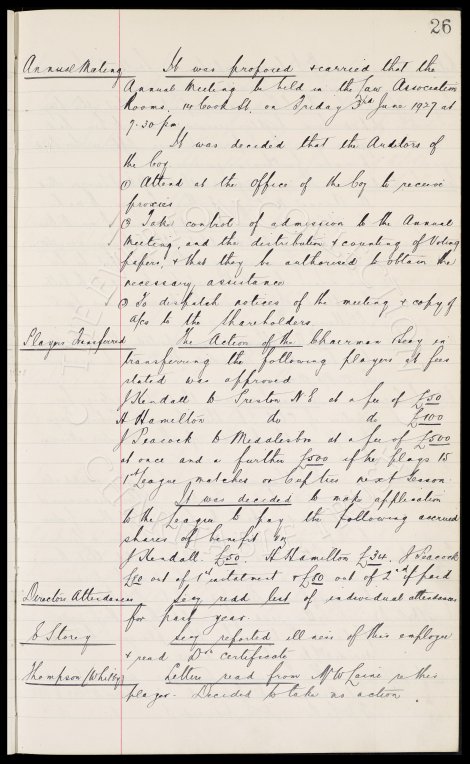 26
Annual Meeting It was proposed & carried that the
Annual Meeting be held in the Law Association
Rooms, 14 Cook St, on Friday 3rd June 1927 at
7-30 pm
It was decided that the Auditors of
the Coy
① Attend at the office of the Coy to receive
proxies
② Take control of admission to the Annual
Meeting, and the distribution & counting of Voting
papers, & that they be authorised to obtain the
necessary assistance
③ To despatch notices of the meeting & copy of
a/cs to the Shareholders
Players Transferred The Action of the Chairman & Secy in
transferring the following players at fees
stated was approved
J Kendall to Preston N E at a fee of £50
H Hamilton do do £100
J Peacock to Middlesbro at a fee of £500
at once and a further £500 if he plays 15
1st League matches or Cup ties next season.
It was decided to make application
to the League to pay the following accrued
shares of benefit viz
J Kendall £50. H Hamilton £34, J Peacock
out of 1st instalment & out of 2nd if paid
Directors Attendances Secy read list of individual attendances
for past year.
E Storey Secy reported illness of this employee
& read Drs certificate
Thompson (Whitby) Letters read from Laine re this
player. Decided to take no action